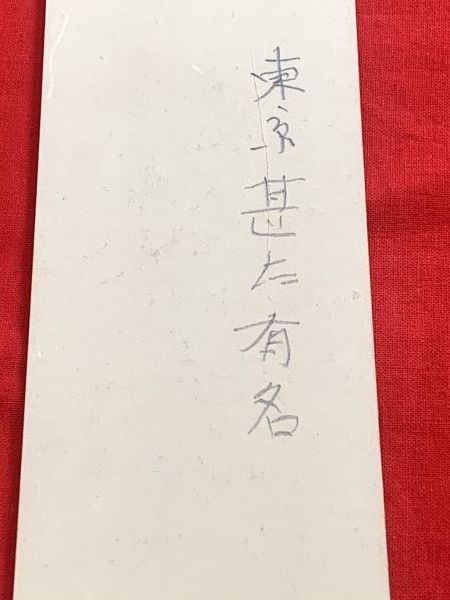 東京甚た有名